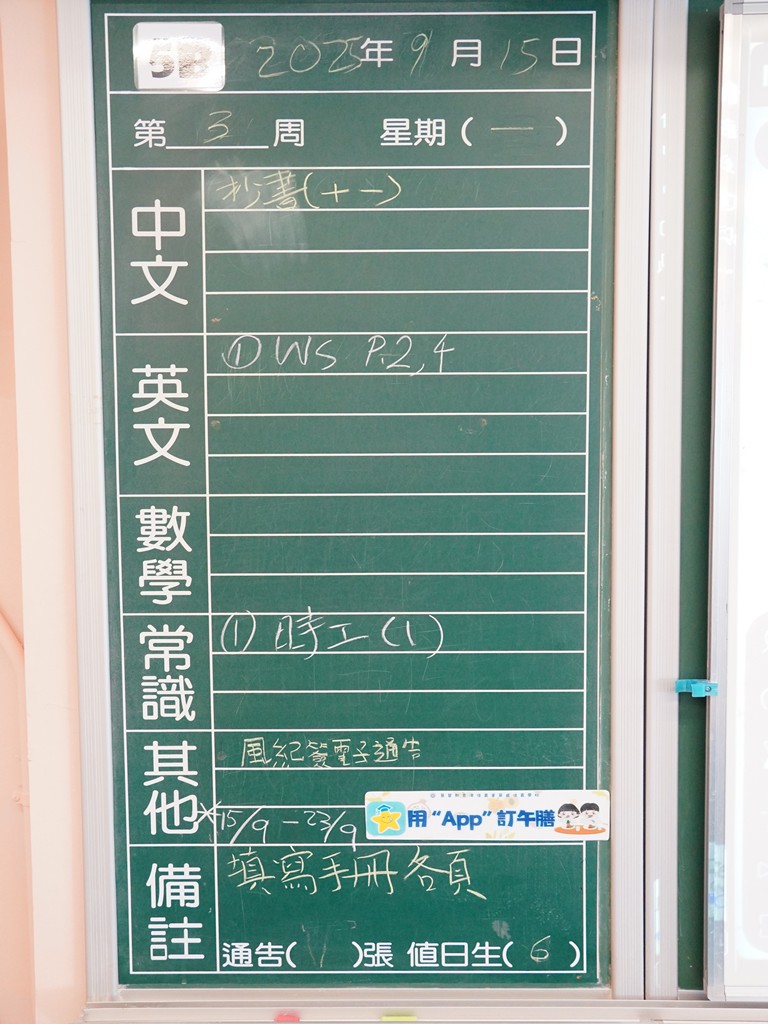 5B 2025年9月15日
第 3 周 星期(一)
中文
抄書(十一)
英文
① WS P.2,4
數學
常識
① 時工(1)
其他
風紀簽電子通告
*15/9-23/9 用“App”訂午膳
備註
填寫手冊各頁
通告( )張 值日生(6)